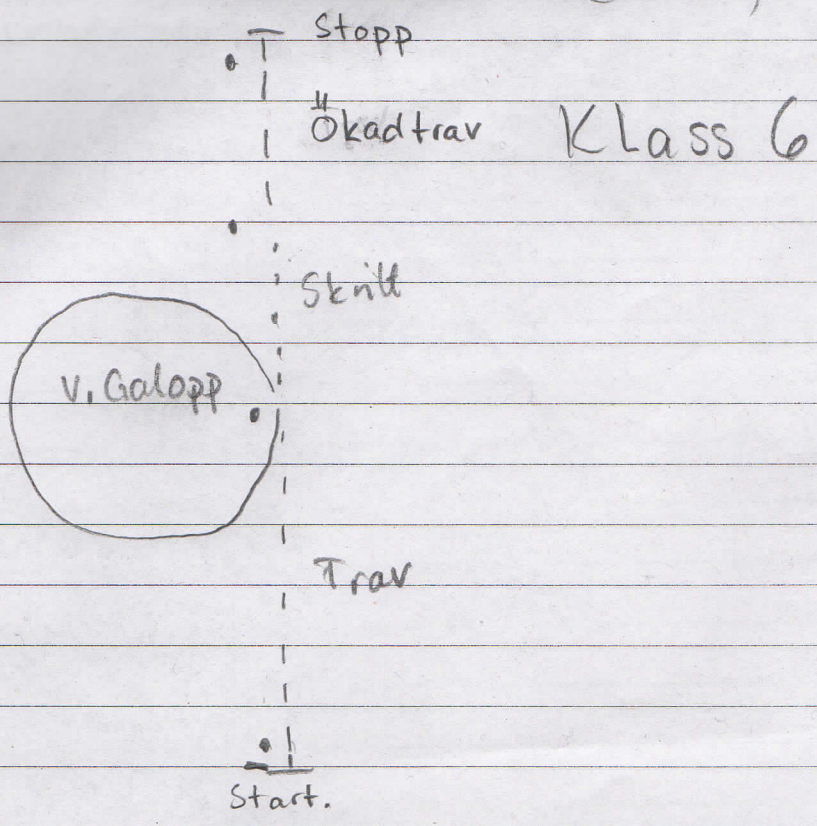 Stopp
Ökadtrav
Klass 6
Skritt
v. Galopp
Trav
Start.